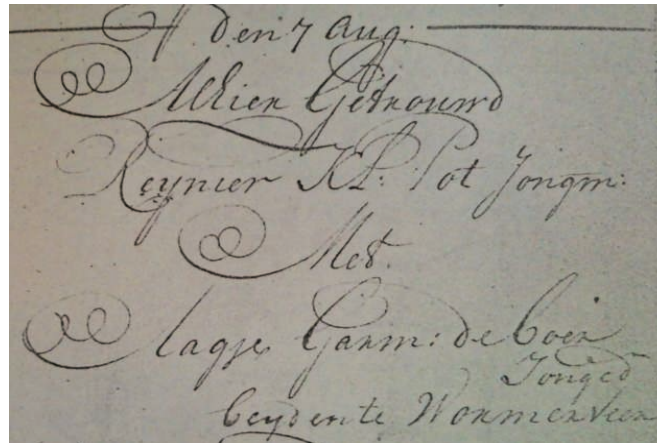 den 7 Aug:
Alhier Getrouwd
Reynier Kl: Pot Jongm:
Met
Aagje Garm: de Boer
Jonged
beyde te Wormerveer